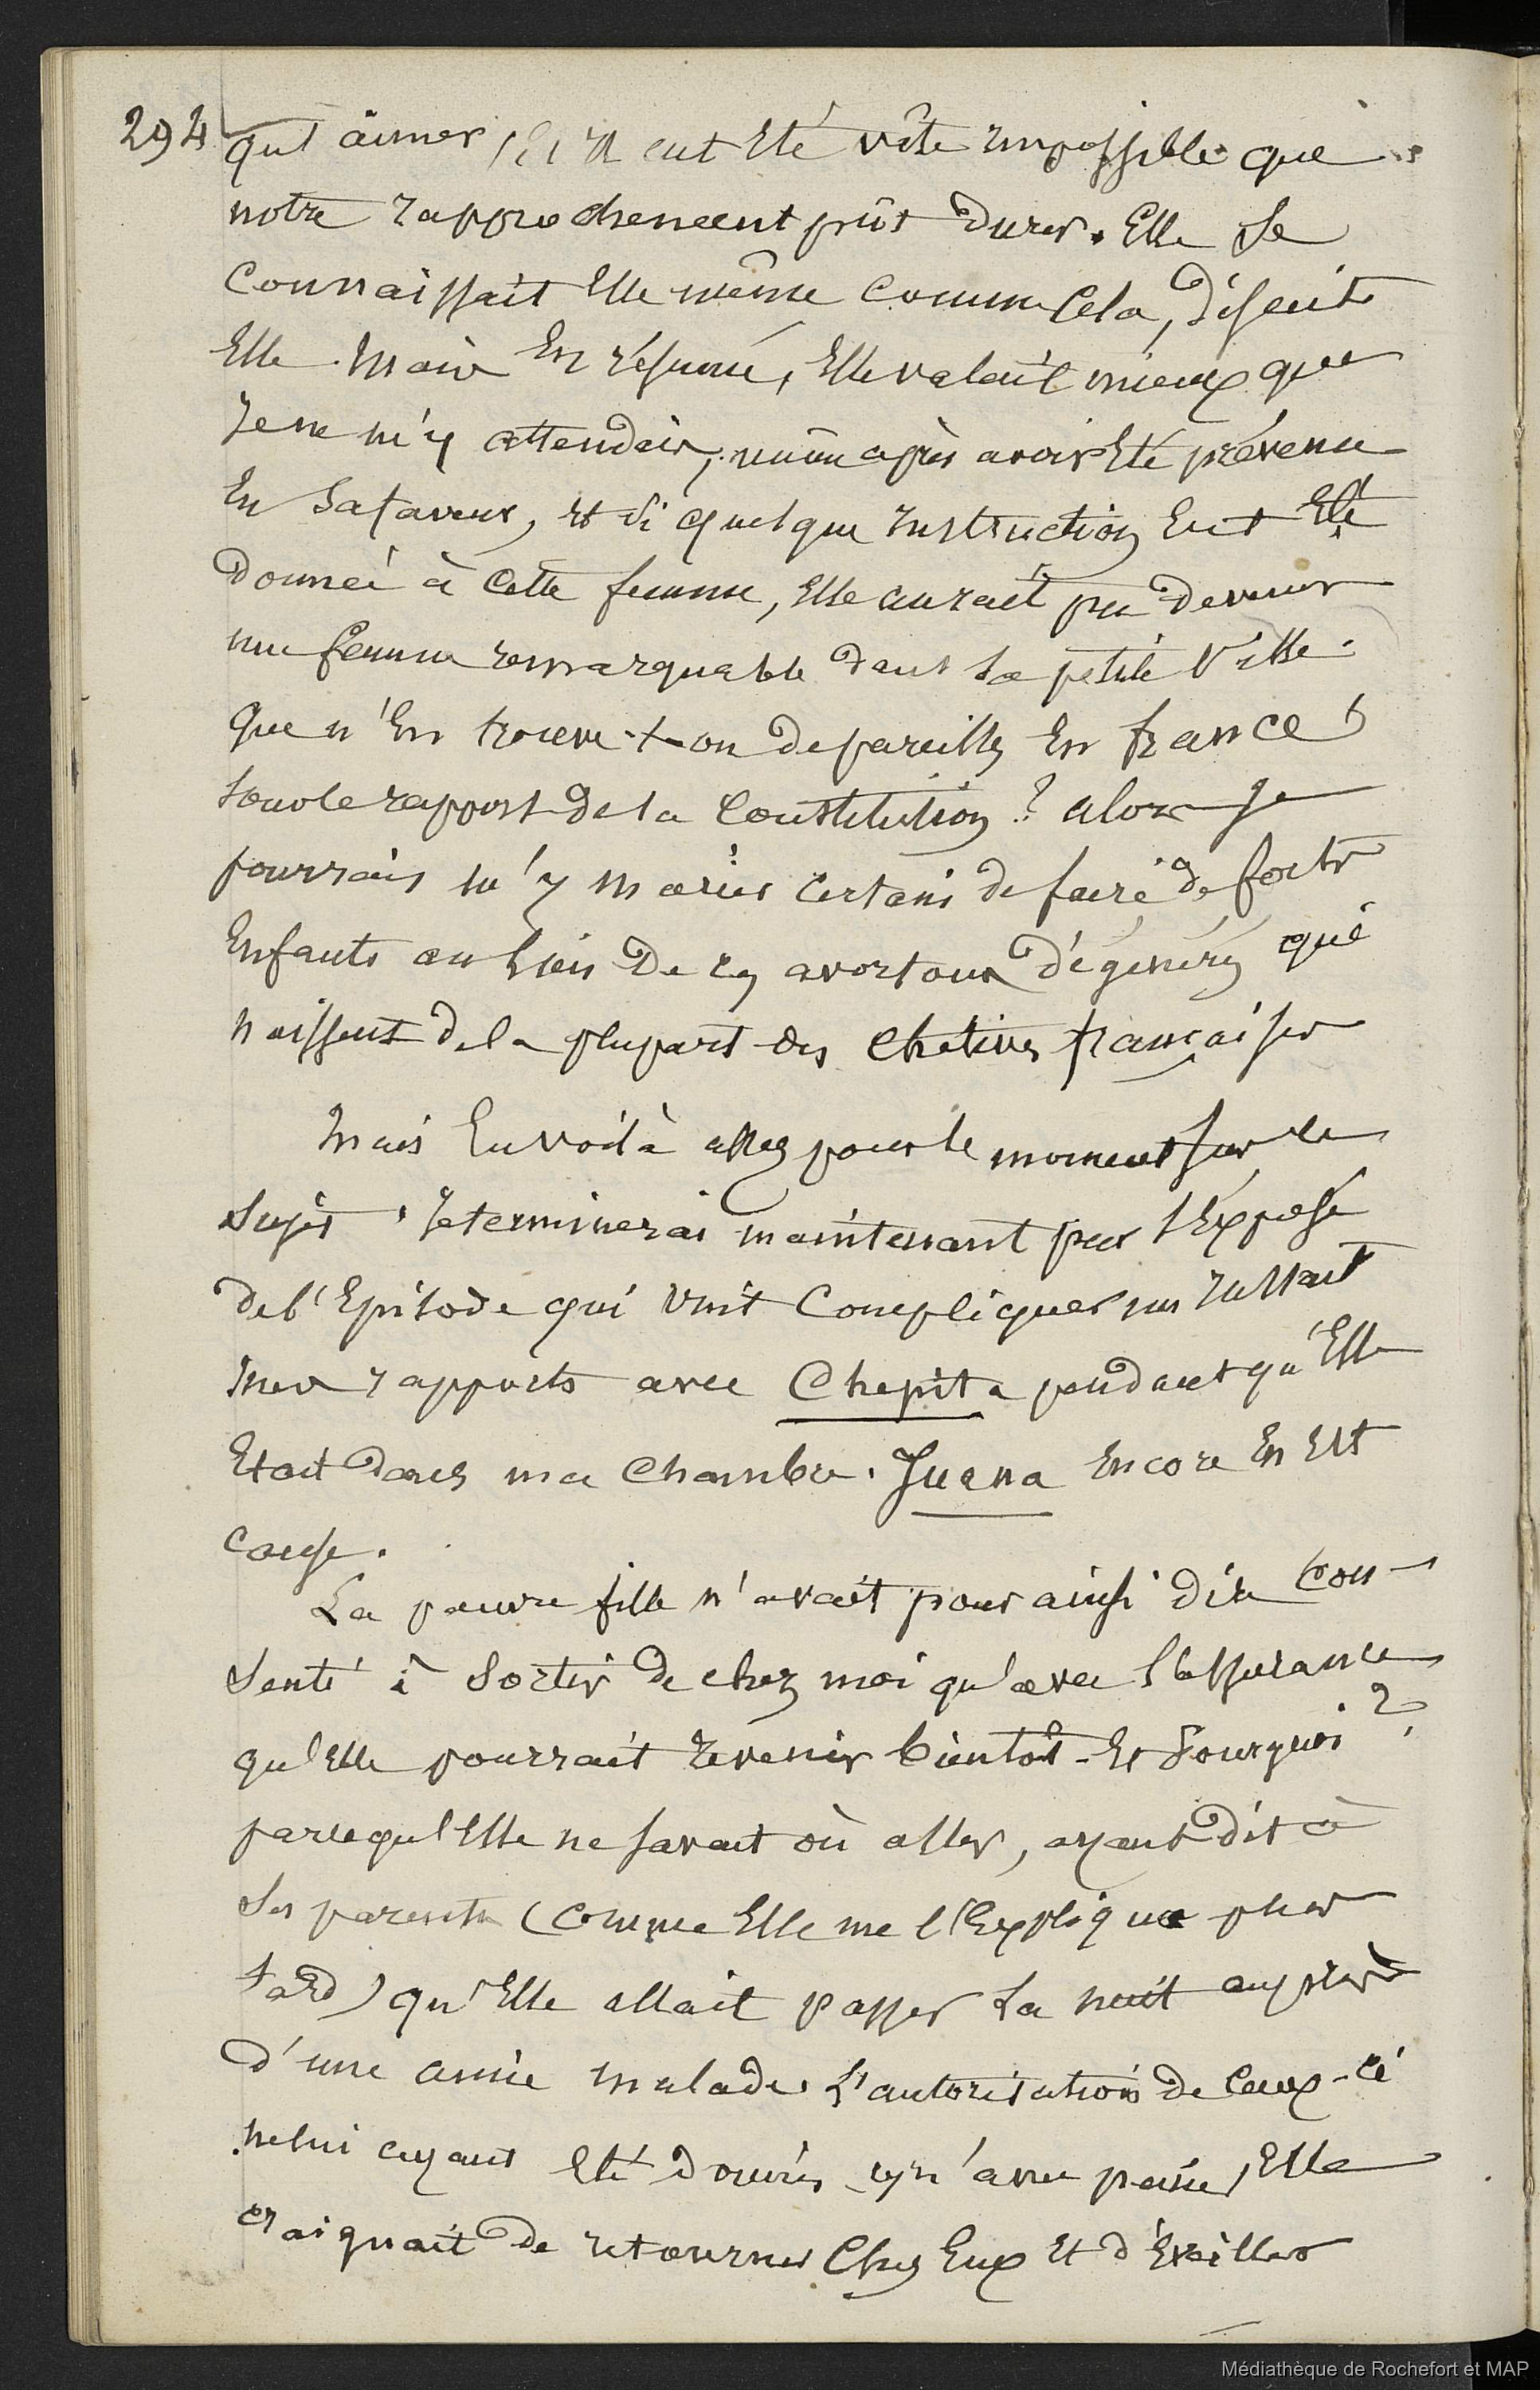 294
qu'aimer, il eut été vite impossible que
notre rapprochement pût durer. Elle se
connaissait elle même comme cela, disait
elle. Mais en résumé, elle valait mieux que
je ne m'y attendais, même après avoir été prévenu
en sa faveur, et si quelque instruction eut été
donnée à cette femme, elle aurait pu devenir
une femme remarquable dans sa petite ville.
Que n'en trouve-t-on de pareilles en france
sous le rapport de la constitution ? alors je
pourrais m'y marier certain de faire de forts
enfants au lieu de ces avortons dégénérés qui
naissent de la plupart des chetives françaises
Mais en voilà assez pour le moment sur ce
sujet. Je terminerai maintenant par l'exposé
de l'Episode qui vint compliquer un instant
mes rapports avec Chepita pendant qu'elle
était dans ma chambre. Juana encore en est
cause.
La pauvre fille n'avait pour ainsi dire con-
senti à sortir de chez moi qu'avec l'assurance
qu'elle pourrait revenir bientôt - Et Pourquoi ?
parcequ'elle ne savait où aller, ayant dit à
ses parents (comme elle me l'expliqua plus
tard) qu'elle allait passer la nuit auprès
d'une amie malade. L'autorisation de ceux-ci
ne lui ayant été donnée qu'avec peine, elle
craignait de retourner chez eux et d'éveiller
Médiathèque de Rochefort et MAP